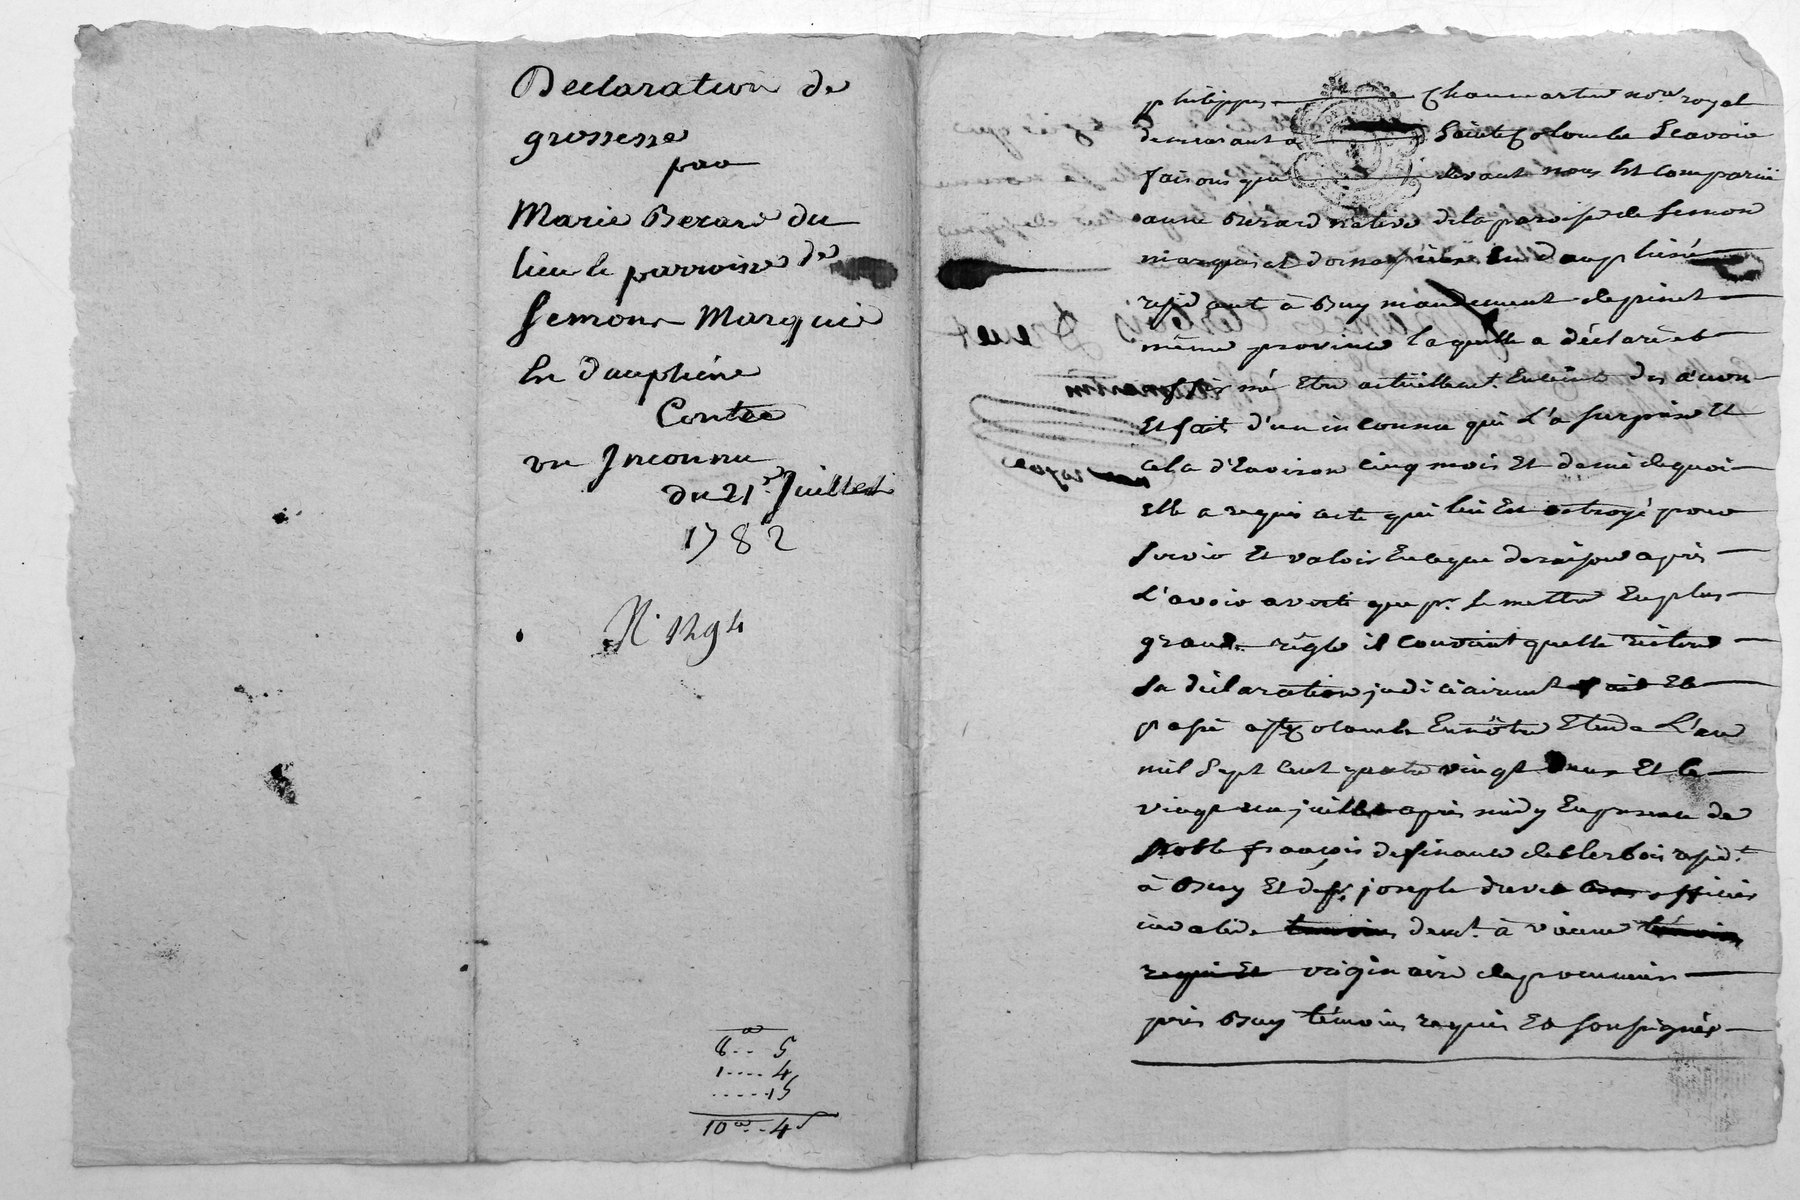 Declaration de
grossesse
par
Marie Berard du
lieu le parroisse de
Semons Marquie
En dauphiné
Contre
un Inconnu
du 21e Juillet
1782
N° 1294
8 .. 5
1 .... 4
..... 15
10 .. 4
philippe Chaumartin no.re royal
demeurant a Sainte Colombe Scavoir
faisons que devant nous Est comparüe
anne Berard native de la paroisse de Semon
en dauphiné
residant à Buy mandement de pinet
même province laquelle a déclaré et
Etre actuellemt. Enceinte des œuvres
Et fait d'un inconnu qui L'a surprise Et
cela d'Environ cinq mois Et demi de quoi
Elle a requis acte qui lui Est octroyé pour
servir Et valoir Ence que de raison après
L'avoir avertie que pr. se mettre En plus
grande règle il convient quelle réitere
sa déclaration judiciairement fait Et
passé a Ste Colombe En nôtre Etude L'an
mil Sept cent quatre vingt deux Et le
vingt un juillet après midy En presence de
Noble françois de finance de Clerbois resid.t
à Buy Et de sr. joseph druet officier
invalide demt. à vienne
requis Et originaire de
près Buy témoins requis Et soussignés